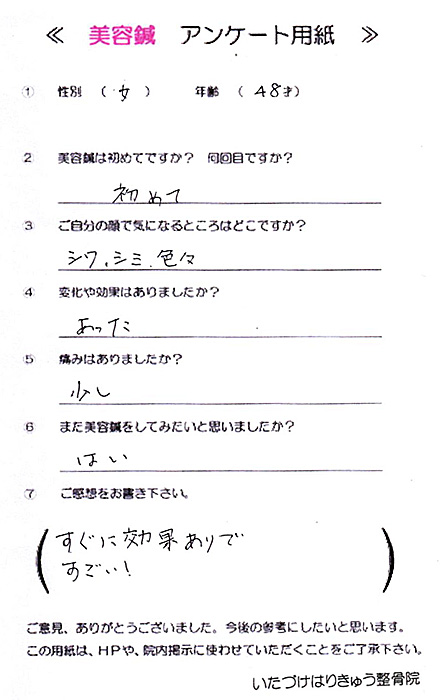 ≪ 美容鍼 アンケート用紙 ≫
① 性別 （ 女 ） 年齢 （ 48才）
② 美容鍼は初めてですか？ 何回目ですか？
初めて
③ ご自分の顔で気になるところはどこですか？
シワ、シミ、色々
④ 変化や効果はありましたか？
あった
⑤ 痛みはありましたか？
少し
⑥ また美容鍼をしてみたいと思いましたか？
はい
⑦ ご感想をお書き下さい。
（すぐに効果ありで
すごい！）
ご意見、ありがとうございました。今後の参考にしたいと思います。
この用紙は、ＨＰや、院内掲示に使わせていただくことをご了承下さい。
いたづけはりきゅう整骨院